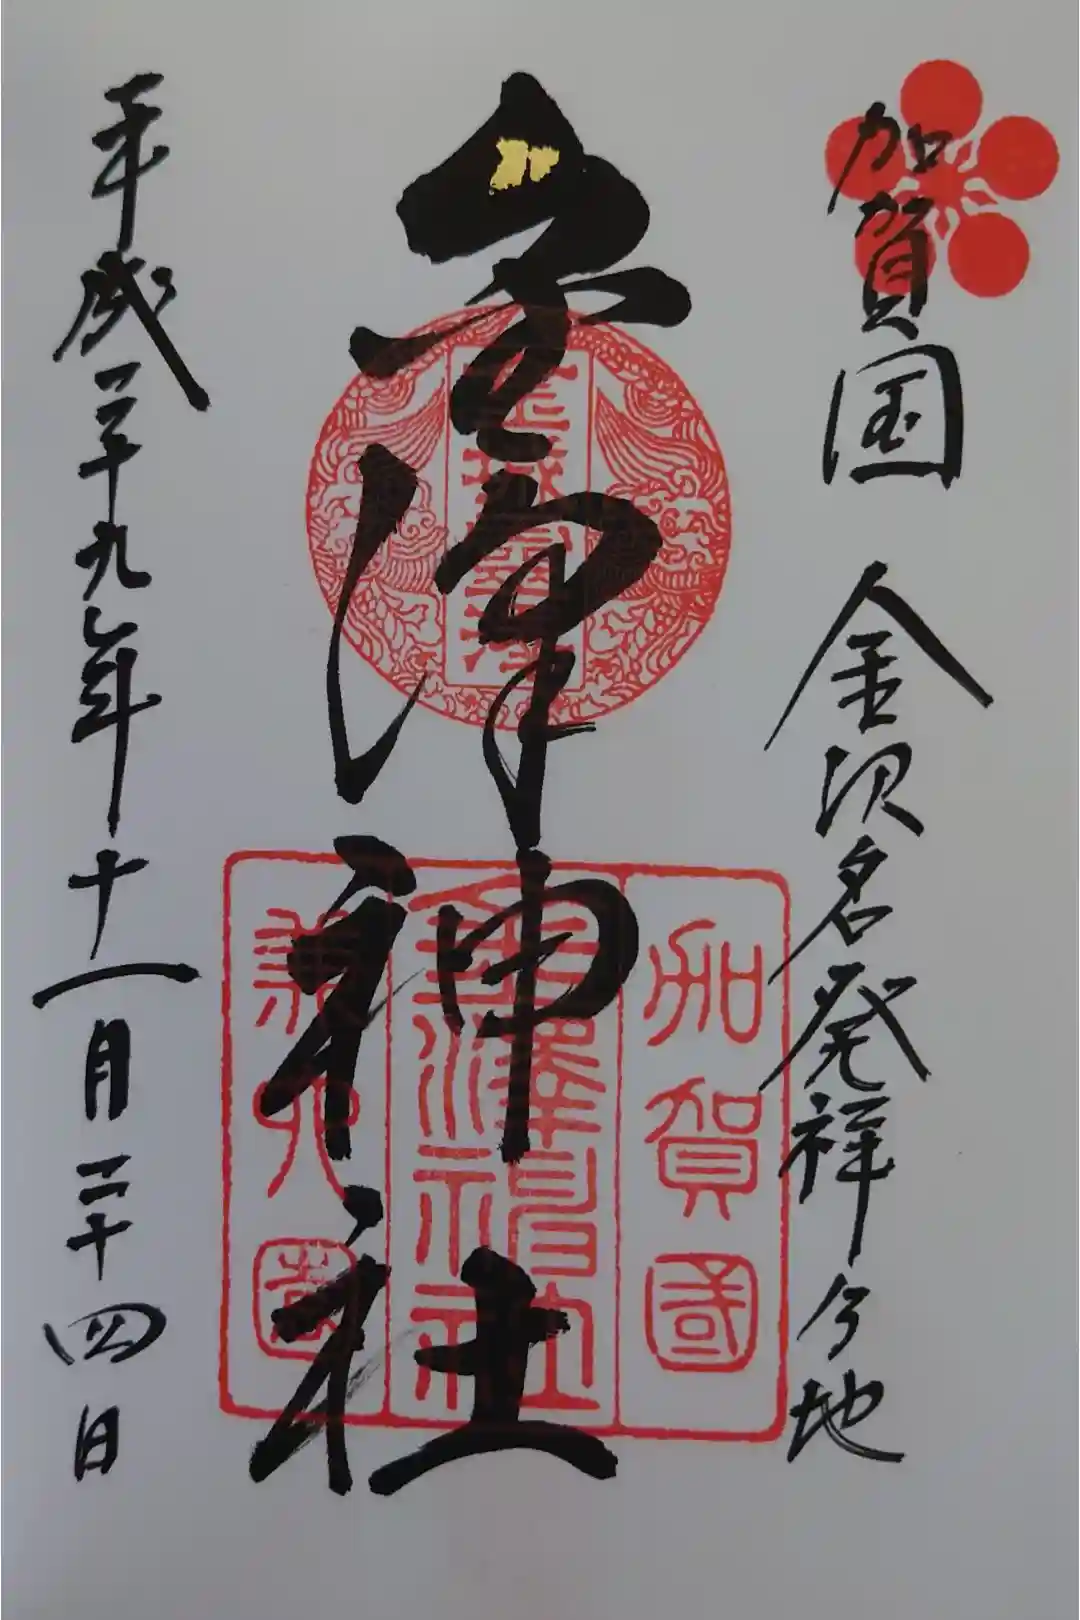 加賀国 金沢名発祥乃地
金澤神社
平成二十九年十一月二十四日
金城霊澤
加賀國
金澤神社
兼六園